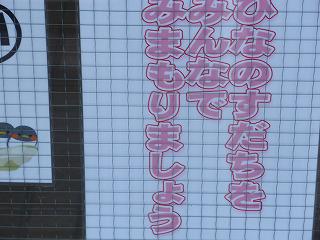 ひなのすだちを
みんなで
みまもりましょう